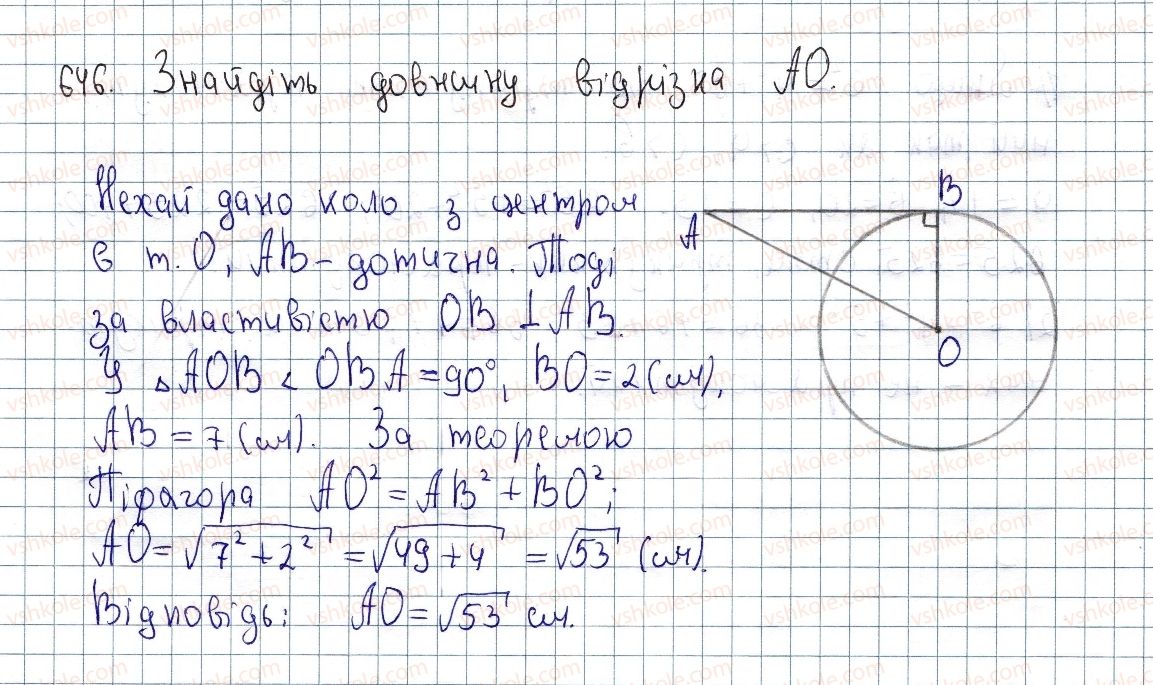 646. Знайдіть довжину відрізка АО.
Нехай дано коло з центром
в т. О, АВ – дотична. Тоді
за властивістю ОВ ⊥ АВ.
У ▵ АОВ < ОВА = 90°, ВО = 2 (см),
АВ = 7 (см). За теоремою
Піфагора АО² = АВ² + ВО²;
АО = √7² + 2² = √49 + 4 = √53 (см).
Відповідь: АО = √53 см.
В
А
О
vshkole.com